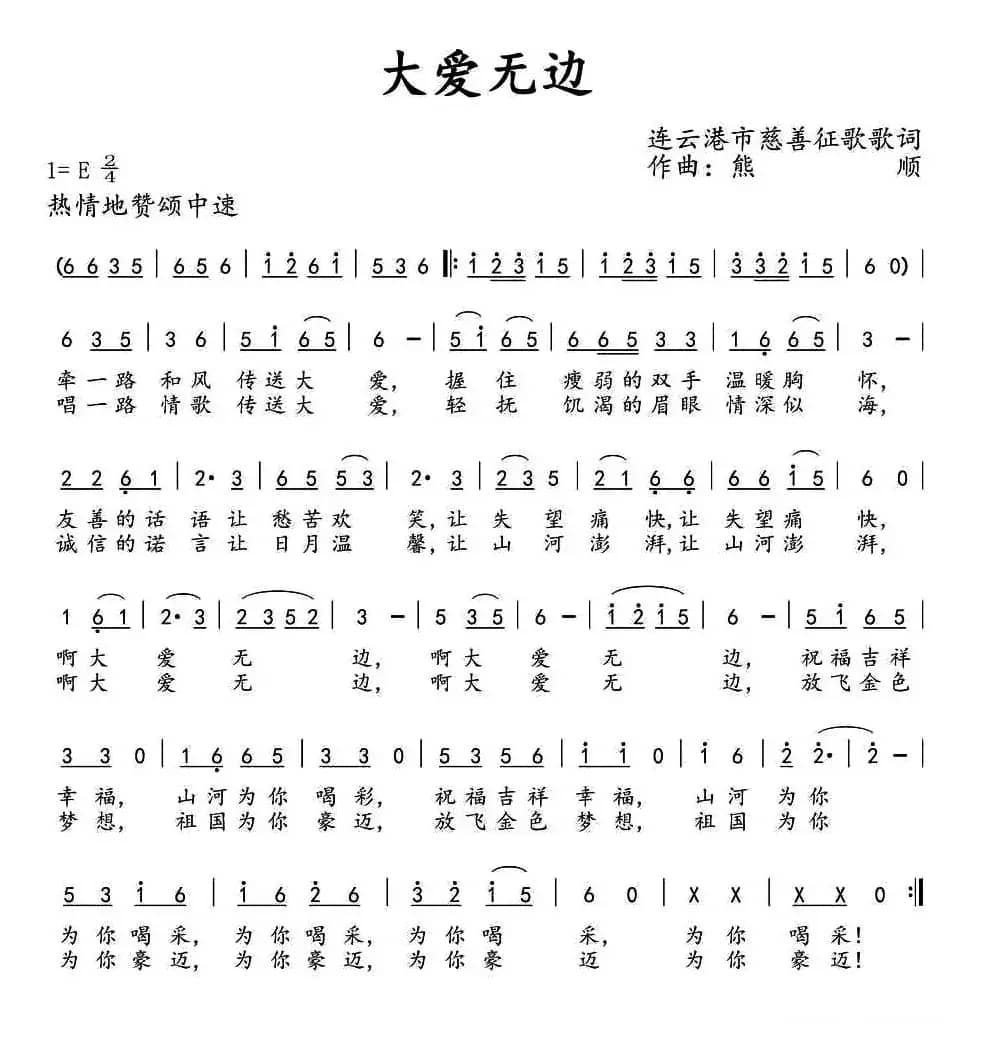 大爱无边
连云港市慈善征歌歌词
1= E 2/4
作曲：熊 顺
热情地赞颂中速
(6 6 3 5 | 6 5 6 | 1 2 6 1 | 5 3 6 |: 1 2 3 1 5 | 1 2 3 1 5 | 3 3 2 1 5 | 6 0) |
6 3 5 | 3 6 | 5 1 6 5 | 6 - | 5 1 6 5 | 6 6 5 3 3 | 1 6 6 5 | 3 - |
牵一路 和风 传送大 爱, 握 住 瘦弱的双手 温暖胸 怀,
唱一路 情歌 传送大 爱, 轻 抚 饥渴的眉眼 情深似 海,
2 2 6 1 | 2· 3 | 6 5 5 3 | 2· 3 | 2 3 5 | 2 1 6 6 | 6 6 1 5 | 6 0
友善的话 语让 愁苦欢 笑,让 失 望 痛 快,让 失望痛 快,
诚信的诺 言让 日月温 馨,让 山 河 澎 湃,让 山河澎 湃,
1 6 1 | 2· 3 | 2 3 5 2 | 3 - | 5 3 5 | 6 - | 1 2 1 5 | 6 - | 5 1 6 5
啊大 爱 无 边, 啊大 爱 无 边, 祝福吉祥
啊大 爱 无 边, 啊大 爱 无 边, 放飞金色
3 3 0 | 1 6 6 5 | 3 3 0 | 5 3 5 6 | 1 1 0 | 1 6 | 2 2· | 2 - |
幸福, 山河为你 喝彩, 祝福吉祥 幸福, 山河 为你
梦想, 祖国为你 豪迈, 放飞金色 梦想, 祖国 为你
5 3 1 6 | 1 6 2 6 | 3 2 1 5 | 6 0 | X X | X X 0 :|
为你喝采, 为你喝采, 为你喝 采, 为你 喝采!
为你豪迈, 为你豪迈, 为你豪 迈 为你 豪迈!